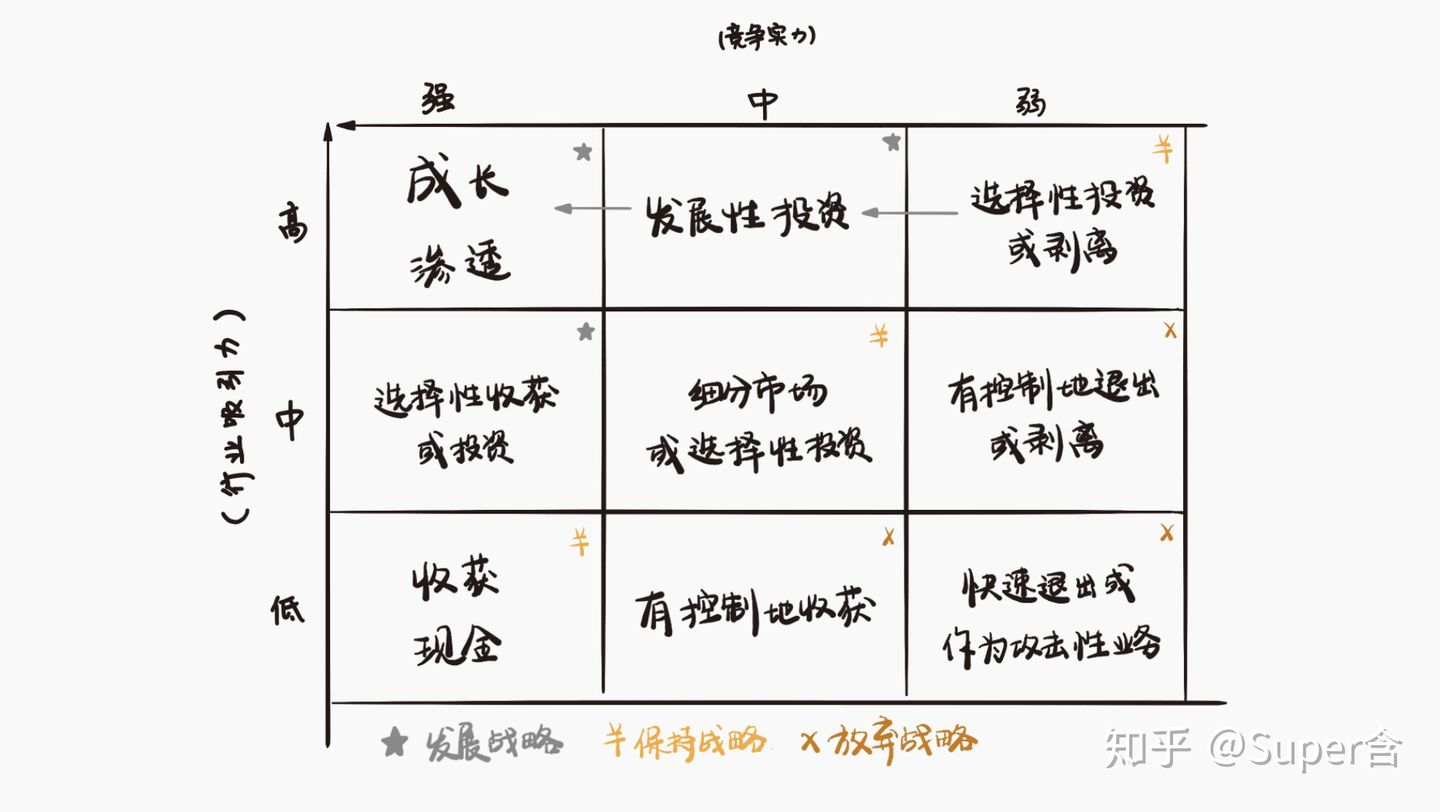 (竞争实力)
强 中 弱
高
成长
渗透
发展性投资
选择性投资
或剥离
(行业吸引力)
中
选择性收获
或投资
细分市场
或选择性投资
有控制地退出
或剥离
低
收获
现金
有控制地收获
快速退出或
作为攻击性业务
★ 发展战略 ¥ 保持战略 x 放弃战略
知乎 @Super含